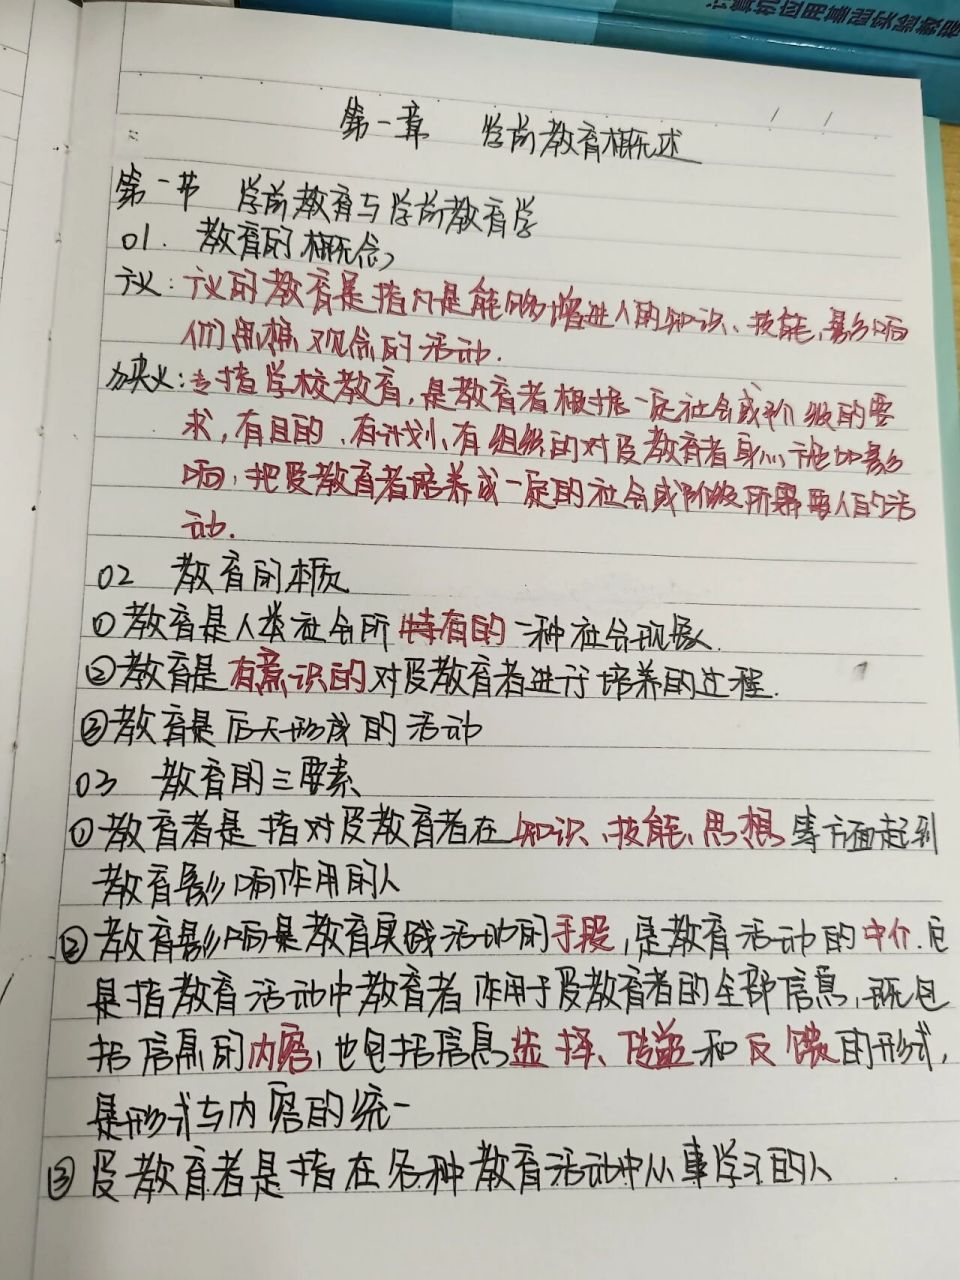 计算机应用基础学验教程
第一章 学前教育概述
第一节 学前教育与学前教育学
01. 教育的概念
广义:广义的教育是指凡是能够增进人的知识、技能,影响
们思想观念的活动.
狭义:专指学校教育,是教育者根据一定社会或阶级的要
求,有目的、有计划、有组织的对受教育者身心施加影
响,把受教育者培养成一定的社会或阶级所需要人的活
动.
02 教育的本质
①教育是人类社会所特有的一种社会现象.
②教育是有意识的对受教育者进行培养的过程.
③教育是后天形成的活动
03 教育的三要素
①教育者是指对受教育者在知识、技能、思想等方面起到
教育影响作用的人
②教育影响是教育实践活动的手段,是教育活动的中介.它
是指教育活动中教育者作用于受教育者的全部信息,既包
括信息的内容,也包括信息选择、传递和反馈的形式,
是形式与内容的统一
③受教育者是指在各种教育活动中从事学习的人